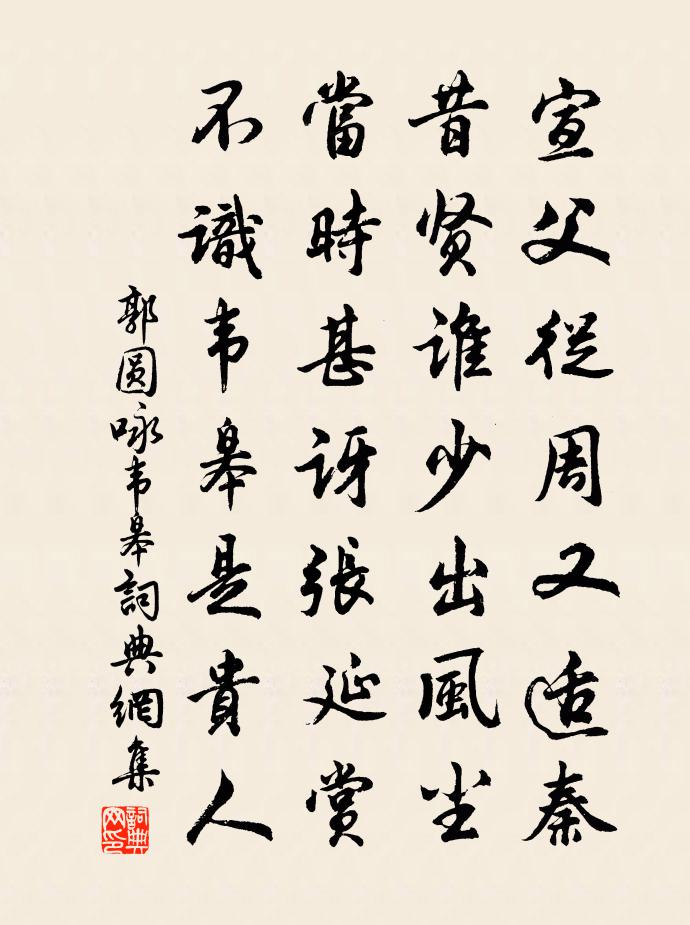 宣父從周又适秦
昔贤誰少出風尘
當時甚訝張延赏
不識韦皋是貴人
郭圆咏韦皋詞典網集
詞典网印